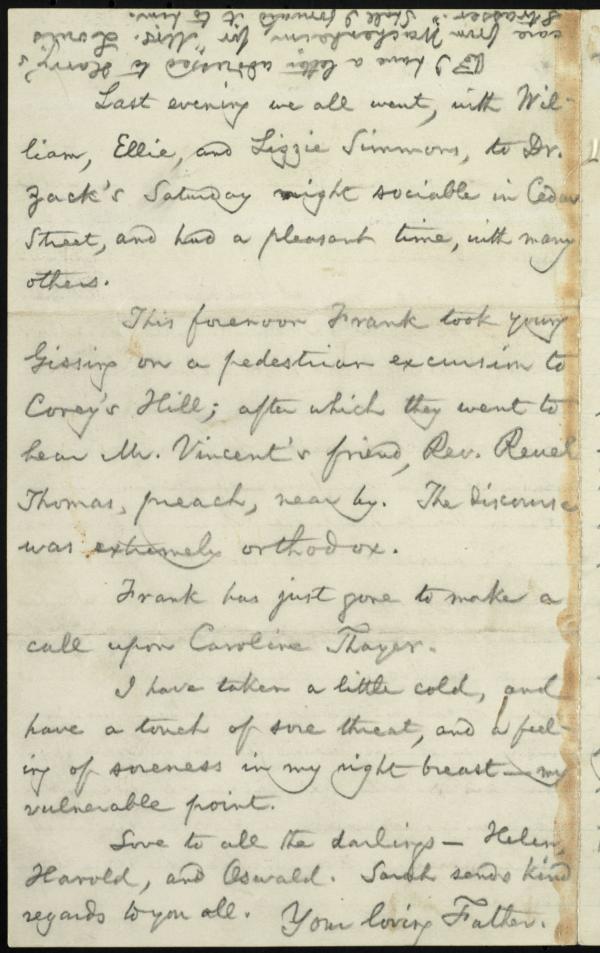 ☞ I have a letter addressed to Harry's
care from Wackenheim, for "Mrs. Louis
Strasser." Shall I forward it to him.
Last evening we all went, with Wil-
liam, Ellie, and Lizzie Simmons, to Dr.
Zack's Saturday night sociable in Cedar
Street, and had a pleasant time, with many
others.
This forenoon Frank took young
Gissing on a pedestrian excursion to
Corey's Hill; after which they went to
hear Mr. Vincent's friend, Rev. Reuel
Thomas, preach, near by. The discourse
was extremely orthodox.
Frank has just gone to make a
call upon Caroline Thayer.
I have taken a little cold, and
have a touch of sore throat, and a feel-
ing of soreness in my right breast—my
vulnerable point.
Love to all the darlings— Helen,
Harold, and Oswald. Sarah sends kind
regards to you all. Your loving Father.